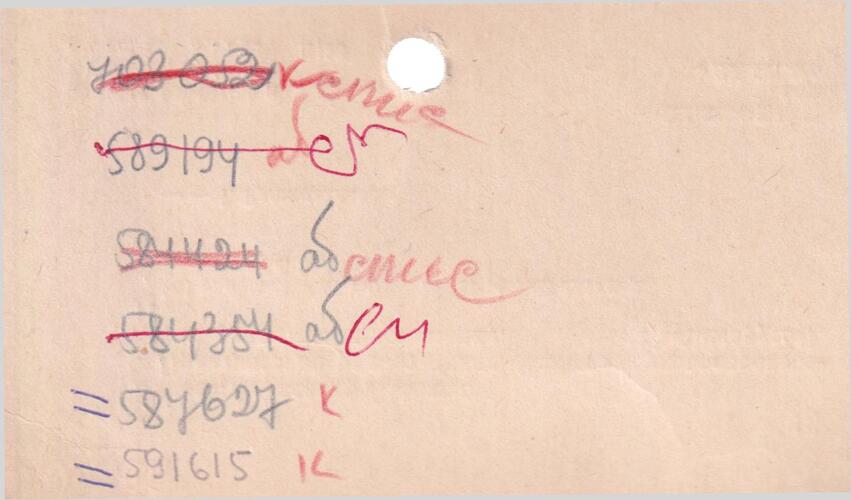 703 052 к спис
589194 аб см
581424 аб спис
584354 аб см
= 587627 к
= 591615 к